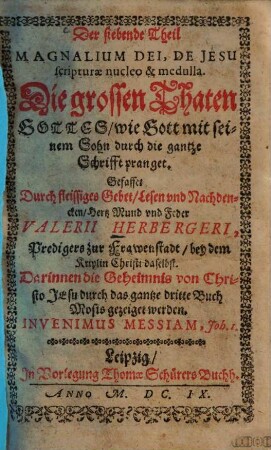 Der siebende Theil
MAGNALIUM DEI, DE JESU
scripturæ nucleo & medulla.
Die grossen Thaten
GOTTES/wie Gott mit sei-
nem Sohn durch die gantze
Schrifft pranget.
Gefasset
Durch fleissiges Gebet/Lesen vnd Nachden-
cken/Hertz Mund vnd Feder
VALERII HERBERGERI,
Predigers zur Frawenstadt/bey dem
Kriplin Christi daselbst.
Darinnen die Geheimnis von Chri-
sto JEsu durch das gantze dritte Buch
Mosis gezeiget werden.
INVENIMUS MESSIAM, Joh. 1.
Leipzig/
In Vorlegung Thomæ Schürers Buchh.
ANNO M. DC. IX.